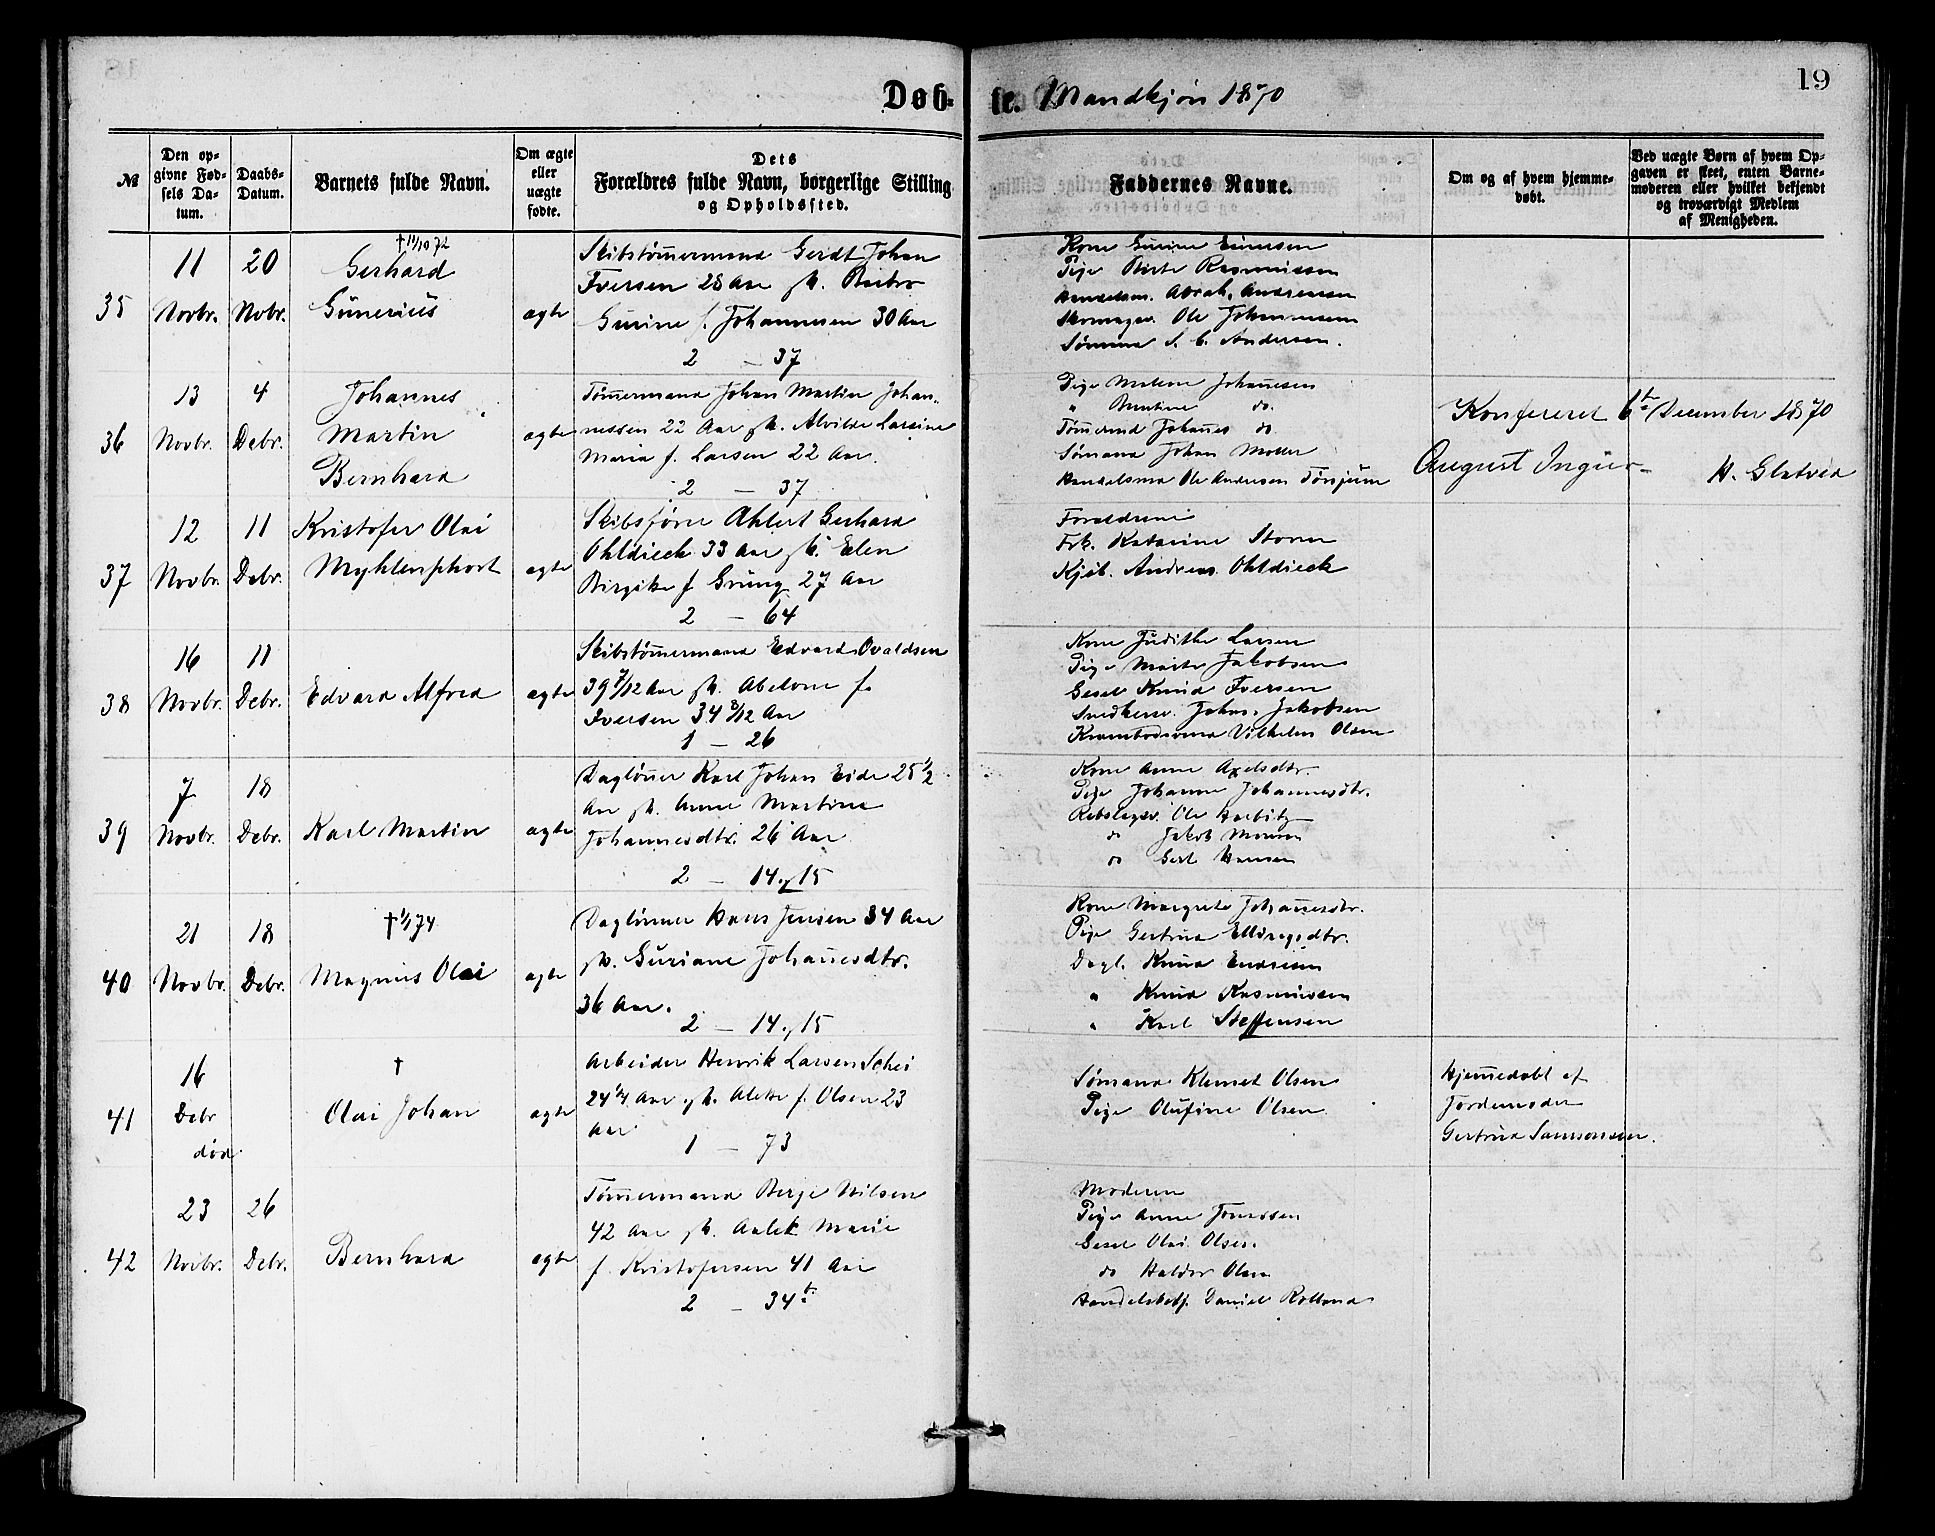 Døb-
te. Mandkjøn 1870
19
№
Den op-
givne Fød-
sels Da-
tum.
Daabs-
Datum.
Barnets fulde Navn.
Om ægte
eller
uægte
fødte.
Dets
Forældres fulde Navn, borgerlige Stilling
og Opholdssted.
Faddernes Navne.
Om og af hvem hjemme-
døbt.
Ved uægte Børn af hvem Op-
gaven er skeet, enten Barne-
moderen eller hvilket bekjendt
og troværdigt Medlem
af Menigheden.
35
11
Novbr.
20
Nobr.
† 11/10 72
Gerhard
Gunerius
ægte
Skibstømermand Gerdt Johan
Iversen 28 Aar
Gurine f. Johannesen 30 Aar
2 — 37
Kone Gurine Einersen
Pige Birte Rasmussen
Handelsm. Abrah. Andreasen
Skomager. Ole Johannesen
Sømand S. C. Andersen.
36
13
Novbr.
4
Debr.
Johannes
Martin
Bernhard
ægte
Tømermand Johan Martin Johan-
nessen 22 Aar Alvilde Larsine
Maria f. Larsen 22 Aar.
2 — 37
Pige Malene Johanesen
" Berntine do.
Tømermd Johanes do
Sømand Johan
Handelsmd Ole Andersen
Konfereret 6te December 1870
August
H. Glatved
37
12
Novbr.
11
Debr.
Kristofer Olai
Myhlenphort
ægte
Skibsfører Ahlert Gerhard
Ohldieck 33 Aar Elen
Birgitte f. Grüng 27 Aar
2 — 64
Forældrene
Frk. Katarine Storm
Kjøb. Andreas Ohldieck
38
16
Novbr.
11
Debr.
Edvard Alfred
ægte
Skibstømermand Edvard Ovaldsen
39 7/12 Aar Abelone f.
Iversen 34 8/12 Aar
1 — 26
Kone Judithe Larsen
Pige Marte Jakobsen
Gesel Knud Iversen
Snedkersv. Johs. Jakobsen
Krambodsvend Vilhelm Olsen
39
7
Novbr.
18
Debr.
Karl Martin
ægte
Dagløner Karl Johan Eide 25 1/2
Aar Anne Martine
Johannesdtr. 26 Aar
2 — 14 & 15
Kone Anne Axelsdtr.
Pige Johanne Johannesdtr.
Rebslager. Ole
do Jakob Monsen
do Gert Hansen
40
21
Novbr.
18
Debr.
† 1/1 74
Magnus Olai
ægte
Dagløner Hans Jensen 34 Aar
Guriane Johanesdtr.
36 Aar.
2 — 14 & 15
Kone Margrete Johanesdtr.
Pige Gertrud Ellingsdtr.
Dagl. Knud Endresen
" Knud Rasmussen
" Karl Steffensen
41
16
Debr
død
†
Olai Johan
ægte
Arbeider Henrik Larsen Schei
24 1/4 Aar Alette f. Olsen 23
Aar
1 — 73
Sømand Klemet Olsen
Pige Olufine Olsen
Hjemedøbt af
Jordemoder
Gertrud Samsonsen.
42
23
Novbr.
26
Debr.
Bernhard
ægte
Tømermand Berge Nilsen
42 Aar Aalet Marie
f. Kristofersen 41 Aar
2 — 34 b.
Moderen
Pige Anne Jonassen
Gesel Olai Olsen.
do Haldor Olsen
Handelsbetj. Daniel Rolland